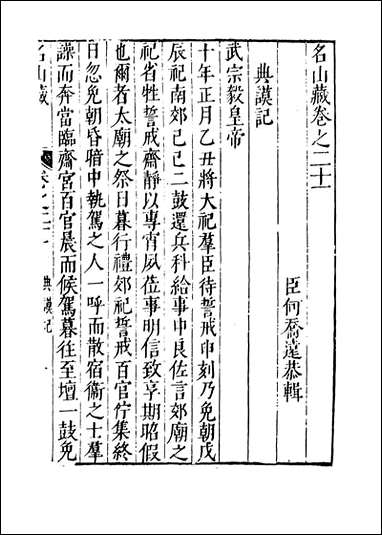 名山藏卷之二十一
臣何喬遠恭輯
典謨記
武宗毅皇帝
十年正月乙丑將大祀羣臣待誓戒申刻乃免朝戊
辰祀南郊己巳二鼓還兵科給事中良佐言郊廟之
祀省牲誓戒齋靜以專宵夙莅事明信致亨期昭假
也爾者太廟之祭日暮行禮郊祀誓戒百官佇集終
日忽免朝昏暗中執駕之人一呼而散宿衞之士羣
譟而奔當臨齋宮百官晨而候駕暮往至壇一鼓免
名山藏 卷之二十一 典謨記 一